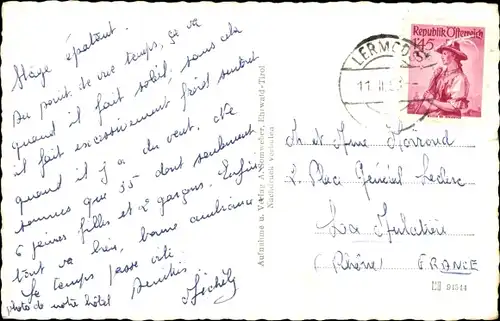 Stage épatant.
Du point de vue temps, ça va
quand il fait soleil, sans cela
il fait excessivement froid surtout
quand il y a du vent. Ne
sommes que 35 dont seulement
6 jeunes filles et 2 garçons. Enfin
tout va bien, bonne ambiance
Le temps passe vite.
Amitiés
photo de notre hôtel
Aufnahme u. Verlag A. Somweber, Ehrwald-Tirol
Nachdruck verboten
LERMOOS
11. II.
Republik Österreich
1.45
M et Mme
2. Place Général Leclerc
La Mulatière
(Rhône) FRANCE
91544